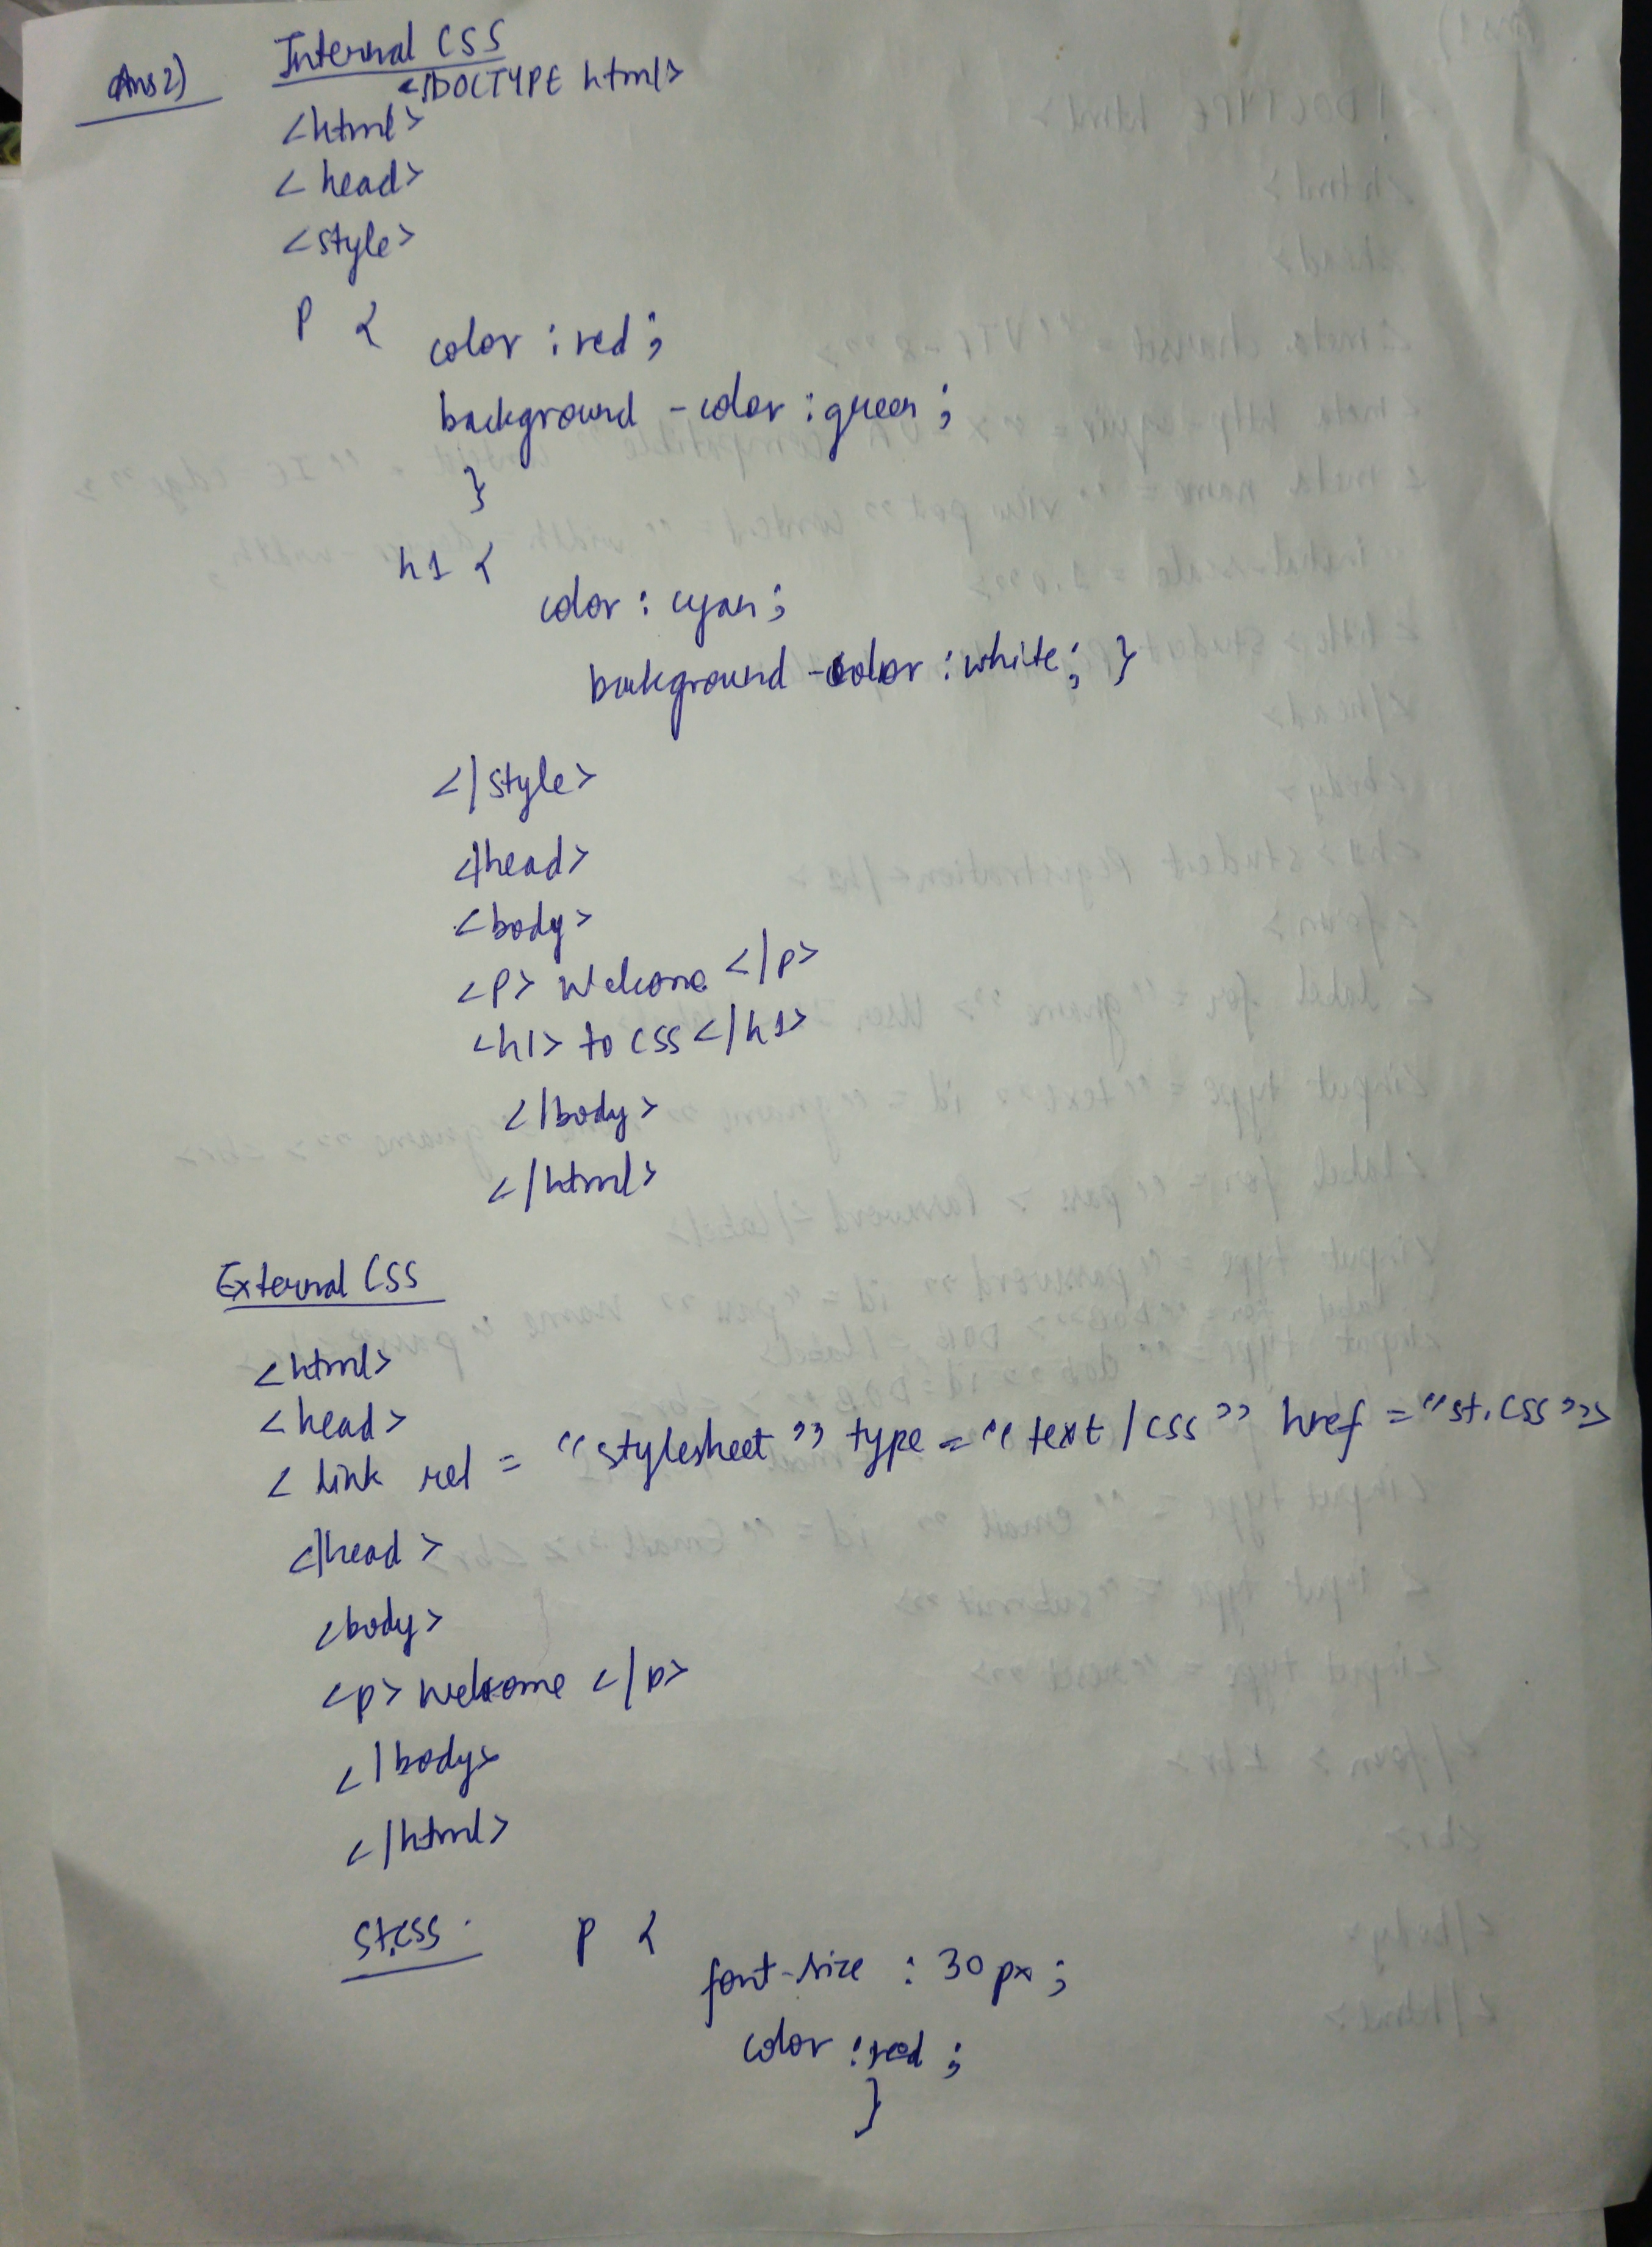 Ans2) Internal CSS
<!DOCTYPE html>
<html>
<head>
<style>
p {
color : red ;
background - color : green ;
}
h1 {
color : cyan ;
background - color : white ; }
</style>
</head>
<body>
<p> Welcome </p>
<h1> to CSS </h1>
</body>
</html>
External CSS
<html>
<head>
< link rel = "stylesheet" type = "text/css" href = "st.css">
</head>
<body>
<p> Welcome </p>
</body>
</html>
st.css. p {
font-size : 30px ;
color : red ;
}